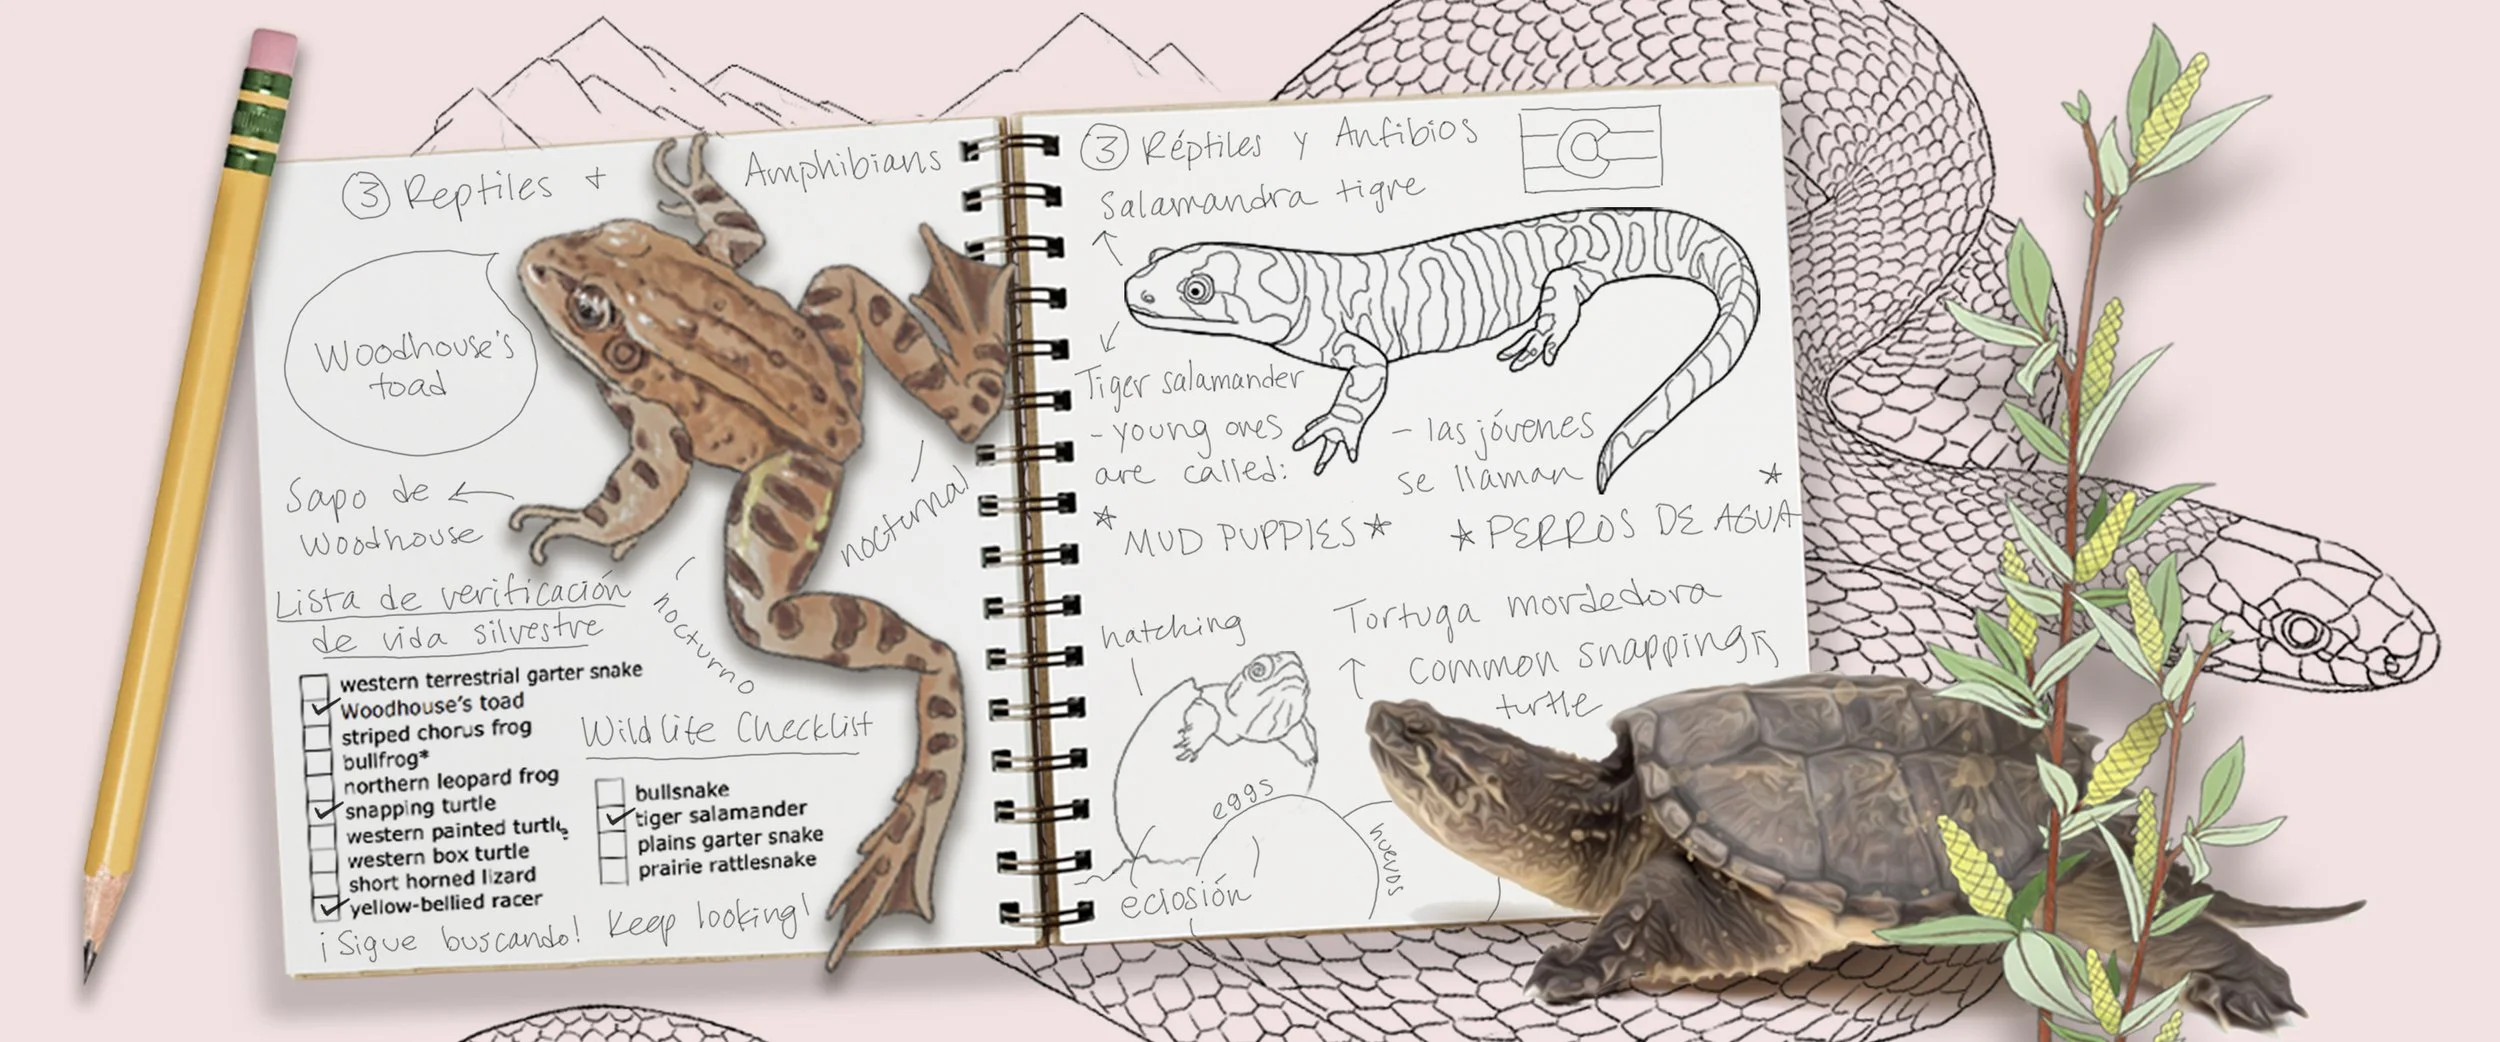 ③ Reptiles + Amphibians
Woodhouse's
toad
Sapo de
Woodhouse
nocturnal
nocturno
Lista de verificación
de vida silvestre
western terrestrial garter snake
Woodhouse's toad
striped chorus frog
bullfrog*
northern leopard frog
snapping turtle
western painted turtle
western box turtle
short horned lizard
yellow-bellied racer
Wildlife Checklist
bullsnake
tiger salamander
plains garter snake
prairie rattlesnake
¡Sigue buscando! Keep looking!
③ Réptiles y Anfibios
Salamandra tigre
Tiger salamander
- young ones
are called:
*MUD PUPPIES*
- las jóvenes
se llaman
*PERROS DE AGUA*
hatching
Tortuga mordedora
common snapping
turtle
eggs
huevos
eclosión